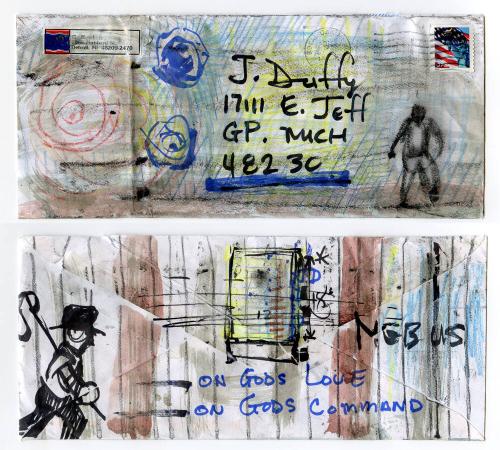 Detroit, MI 48209-2470
J. Duffy
17111 E. Jeff
GP. MICH
48230
NEBUS
ON GODS LOVE
ON GODS COMMAND